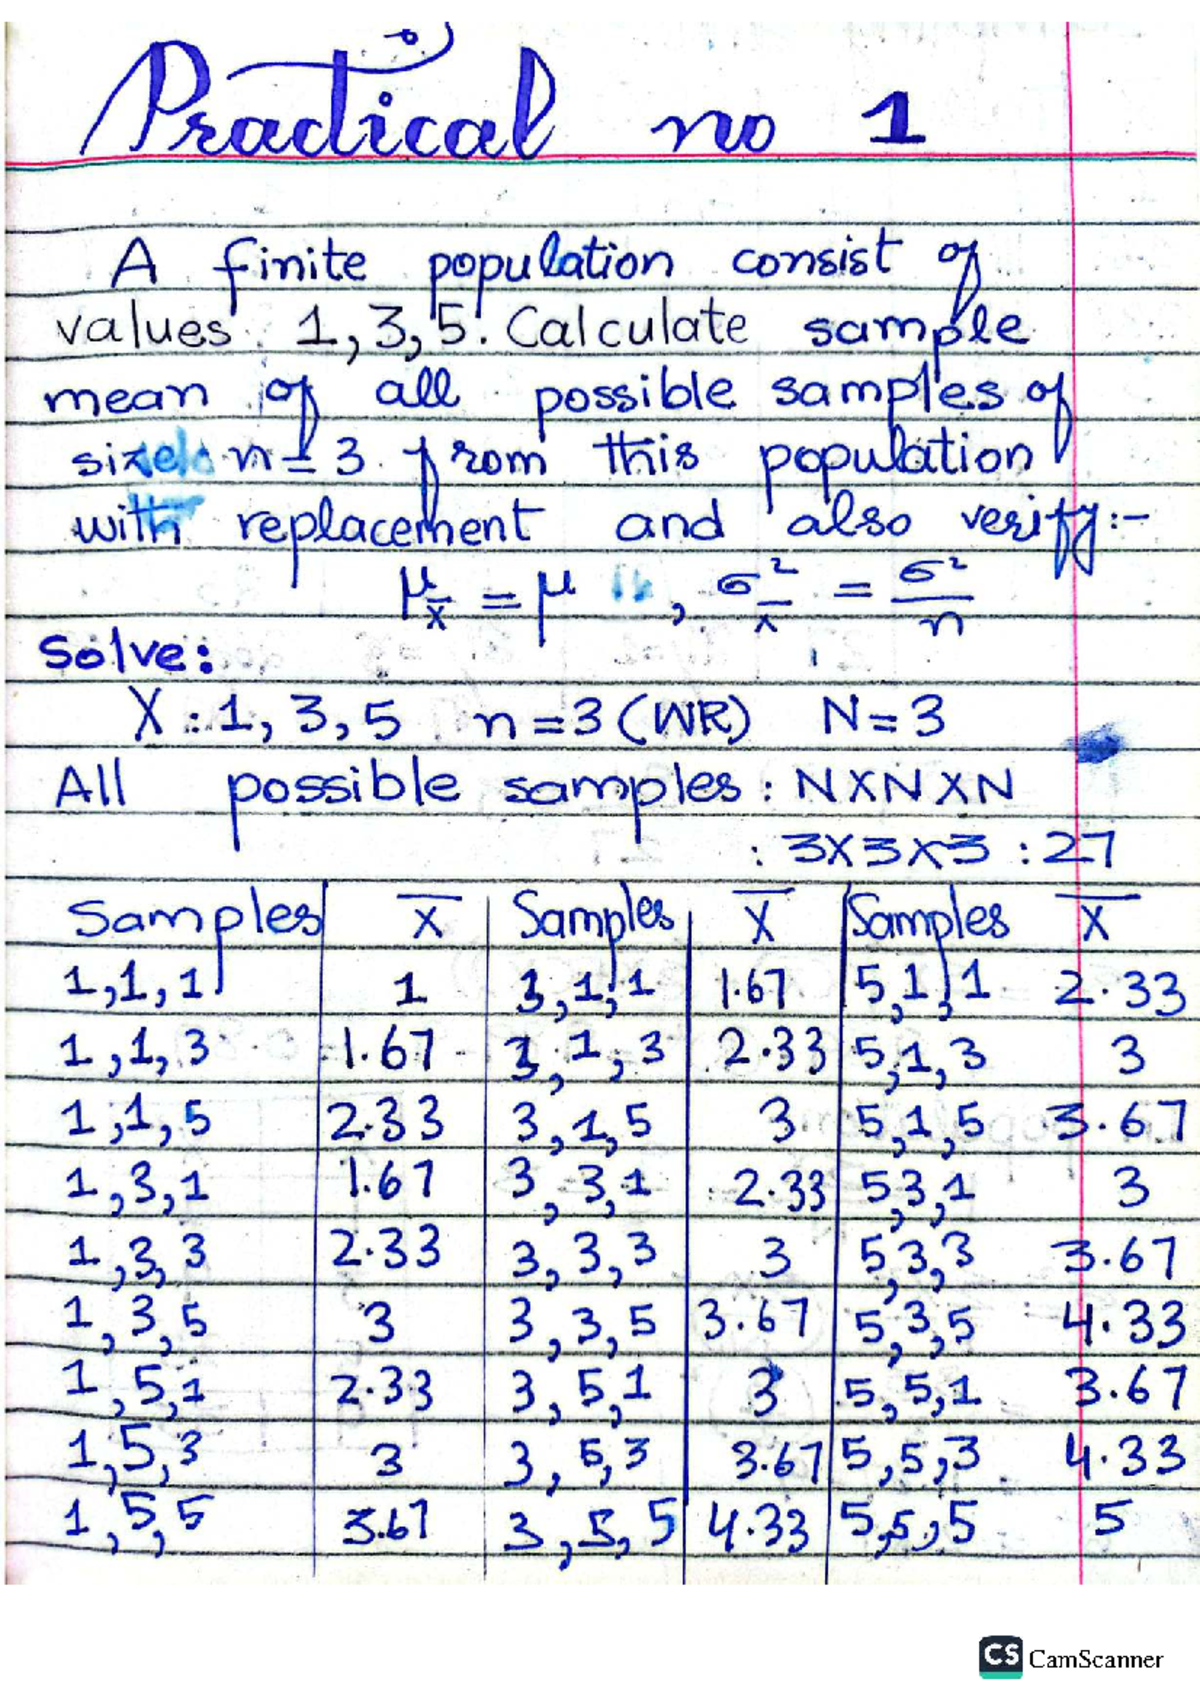 Practical no 1
A finite population consist of
values 1, 3, 5. Calculate sample
mean of all possible samples of
size n = 3 from this population
with replacement and also verify:-
μx̄ = μ , σ²x̄ = σ²/n
Solve:
X : 1, 3, 5 n = 3 (WR) N = 3
All possible samples : N X N X N
: 3 X 3 X 3 : 27
Samples X̄ Samples X̄ Samples X̄
1,1,1 1 3,1,1 1.67 5,1,1 2.33
1,1,3 1.67 3,1,3 2.33 5,1,3 3
1,1,5 2.33 3,1,5 3 5,1,5 3.67
1,3,1 1.67 3,3,1 2.33 5,3,1 3
1,3,3 2.33 3,3,3 3 5,3,3 3.67
1,3,5 3 3,3,5 3.67 5,3,5 4.33
1,5,1 2.33 3,5,1 3 5,5,1 3.67
1,5,3 3 3,5,3 3.67 5,5,3 4.33
1,5,5 3.67 3,5,5 4.33 5,5,5 5
CS CamScanner